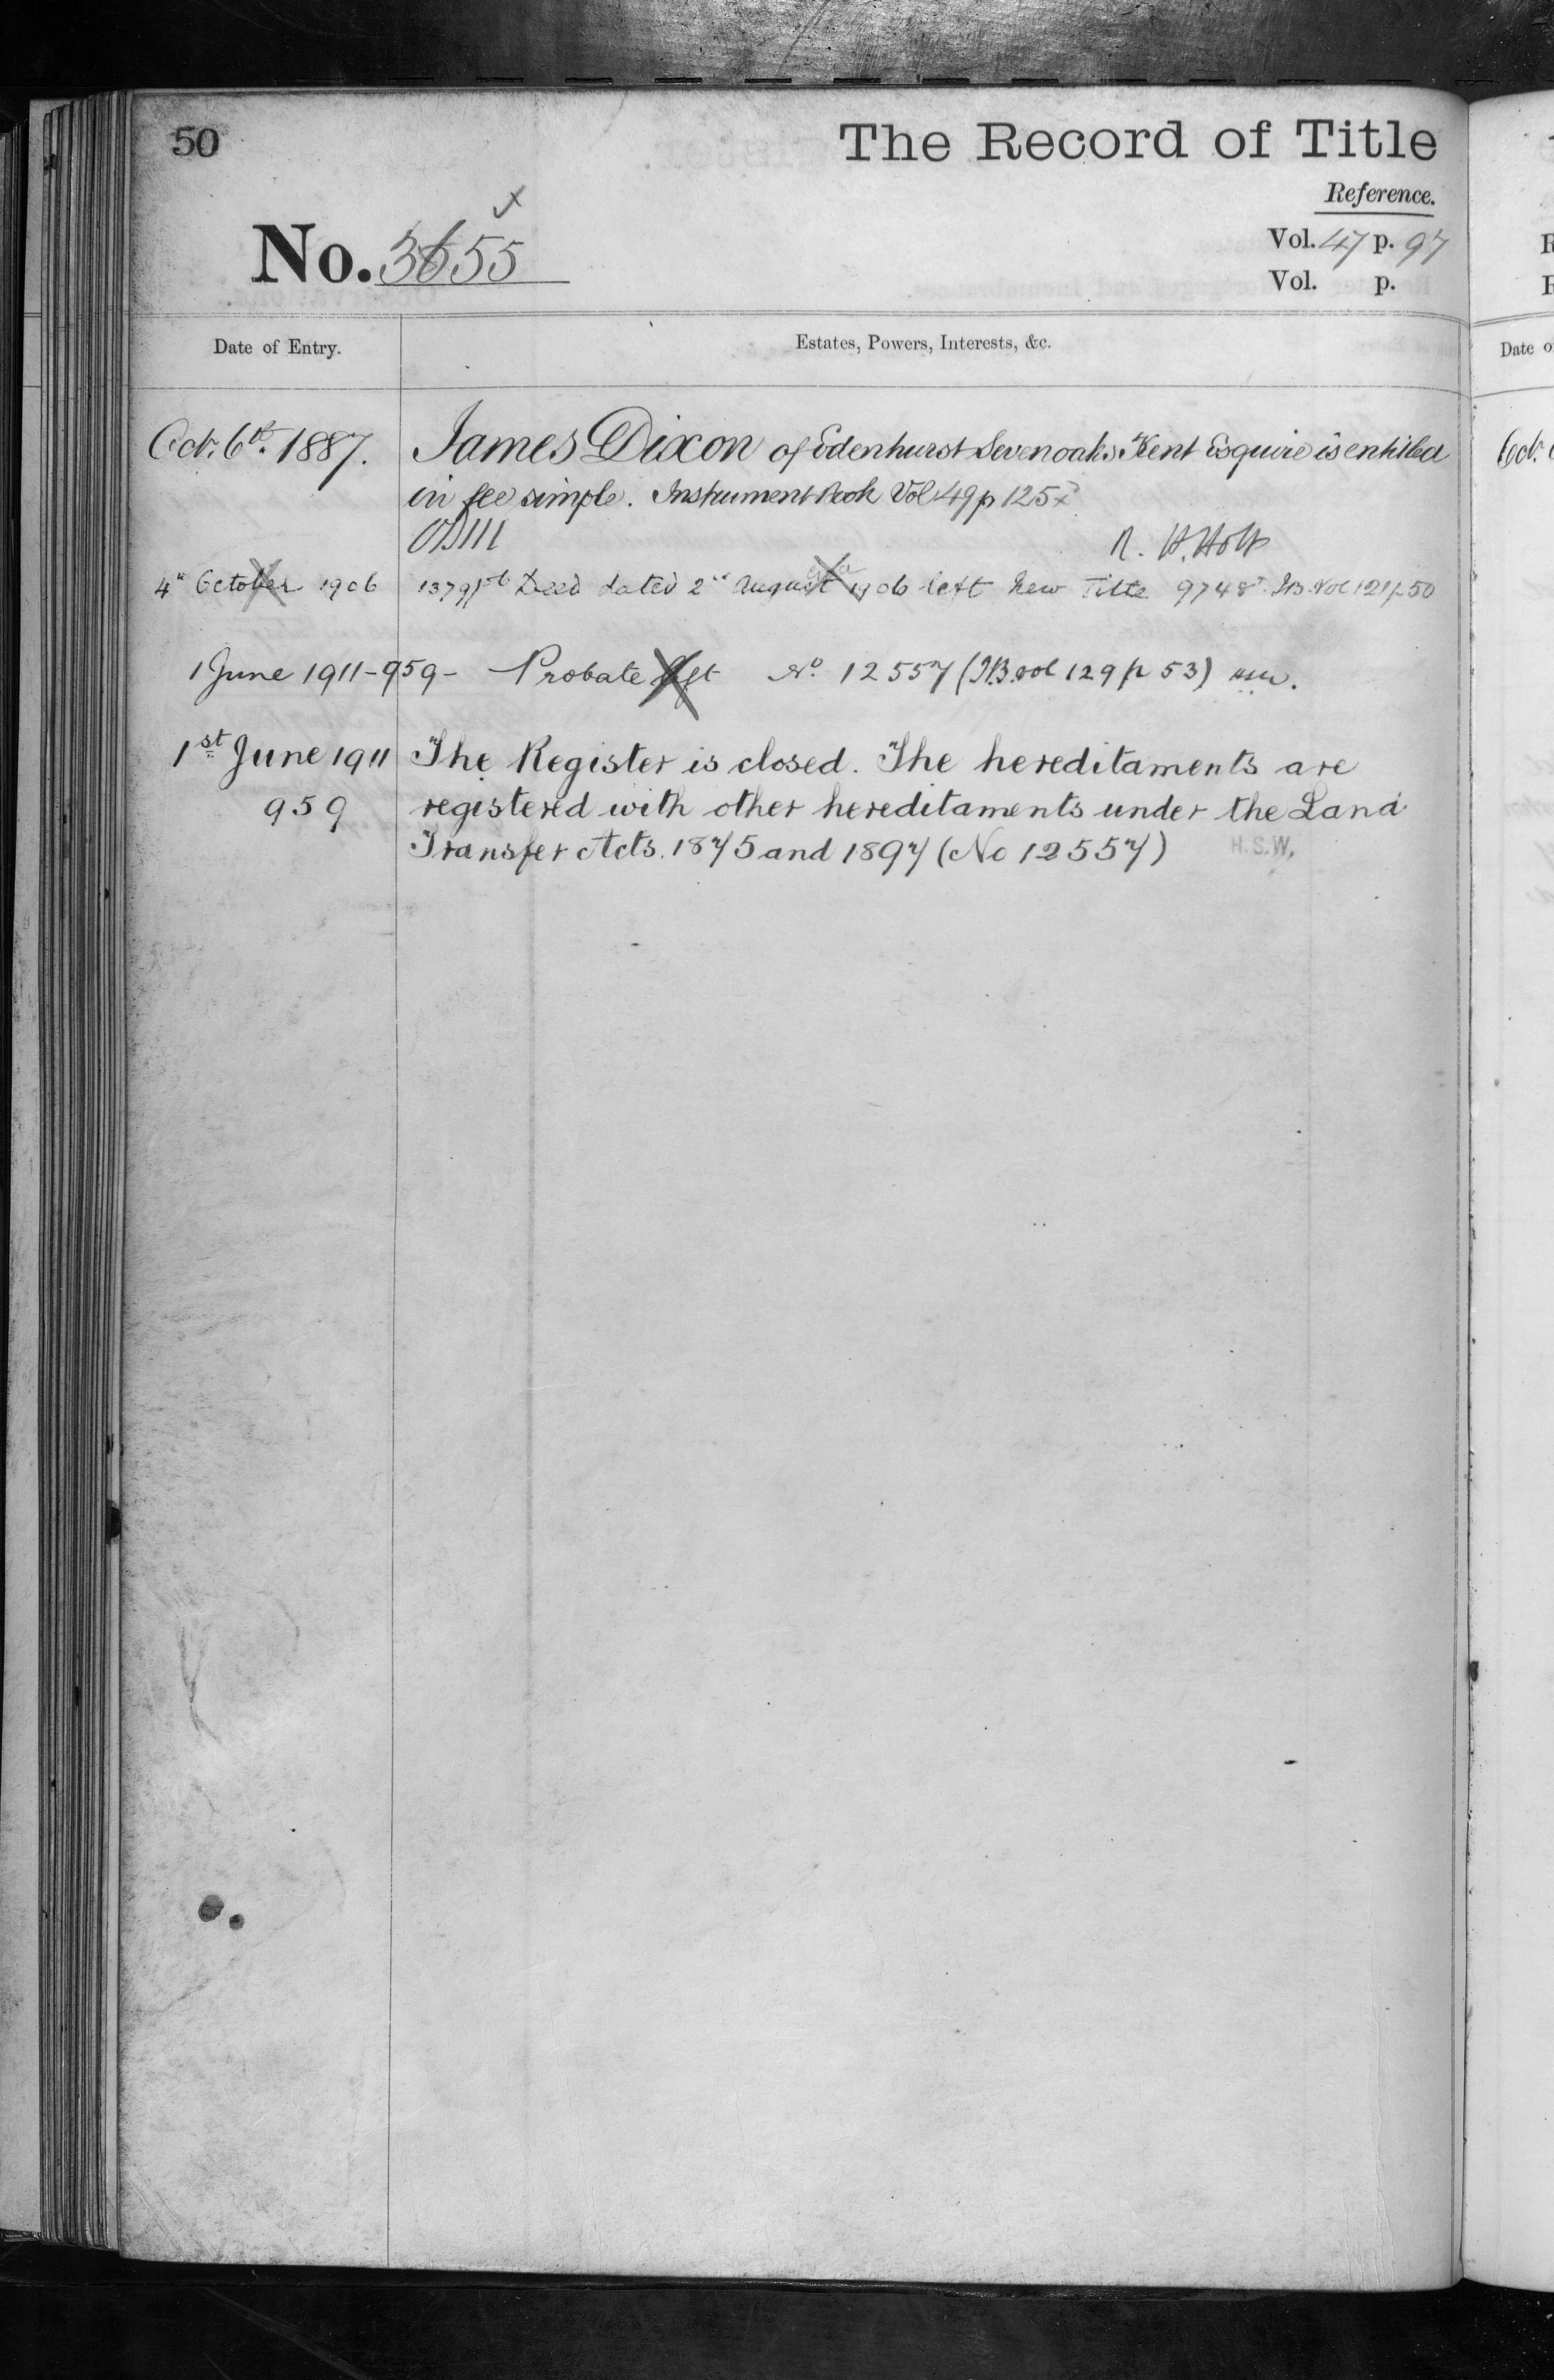 50
The Record of Title
Reference.
No. 3655
Vol. 47 p. 97
Vol. p.
Date of Entry.
Estates, Powers, Interests, &c.
Oct. 6th. 1887.
James Dixon of Edenhurst Sevenoaks Kent Esquire is entitled
in fee simple. Instrument Book Vol 49 p 125
R. H. Holt
4th October 1906
Deed dated 2nd August 1906 left New Title 9748 IB. Vol 121 p 50
1 June 1911 - 959 - Probate No. 12557 (IB. vol 129 p 53)
1st June 1911
The Register is closed. The hereditaments are
959
registered with other hereditaments under the Land
Transfer Acts. 1875 and 1897 (No 12557) H.S.W.
Date o
Oct.